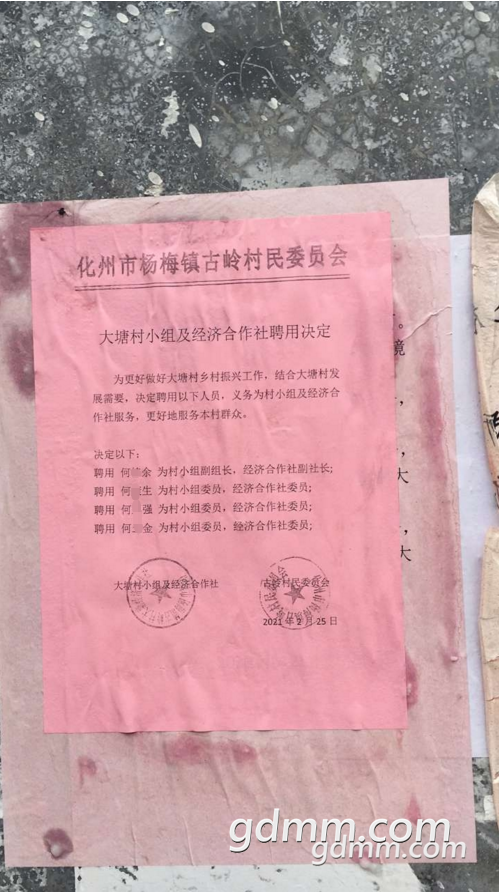 化州市杨梅镇古岭村民委员会
大塘村小组及经济合作社聘用决定
为更好做好大塘村乡村振兴工作，结合大塘村发
展需要，决定聘用以下人员，义务为村小组及经济合
作社服务，更好地服务本村群众。
决定以下：
聘用 何 余 为村小组副组长，经济合作社副社长；
聘用 何 生 为村小组委员，经济合作社委员；
聘用 何 强 为村小组委员，经济合作社委员；
聘用 何 金 为村小组委员，经济合作社委员；
大塘村小组及经济合作社 古岭村民委员会
2021 年 2 月 25 日
境
大
大
gdmm.com
gdmm.com